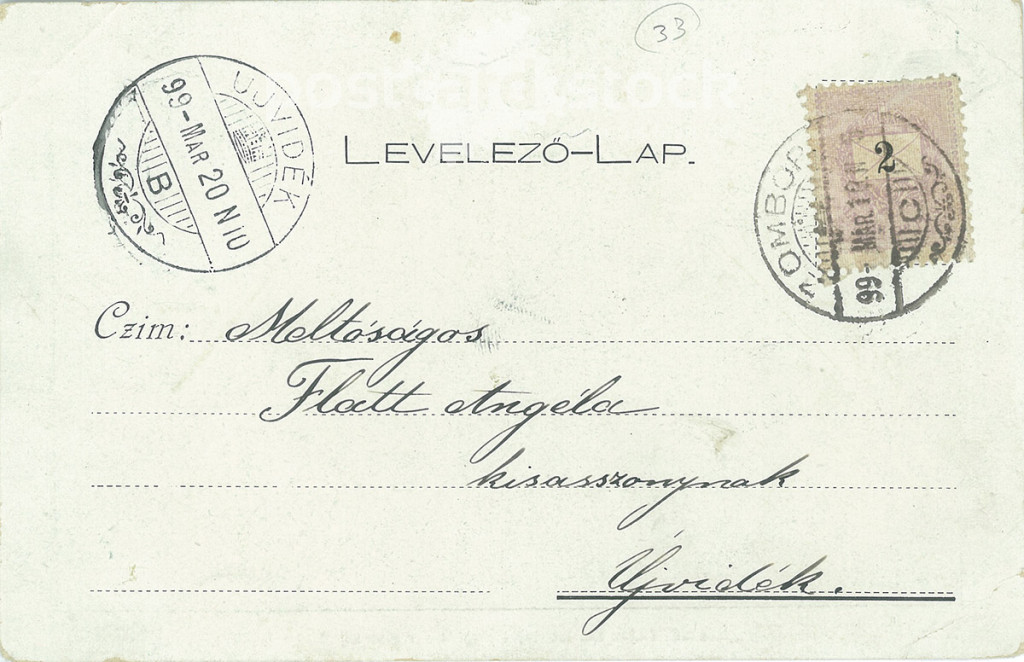 33
ÚJVIDÉK
99-MAR.20 N10
B
LEVELEZŐ-LAP.
ZOMBOR
2
99-MAR.
C
Czim: Meltóságos
Flatt Angéla
kisasszonynak
Újvidék.